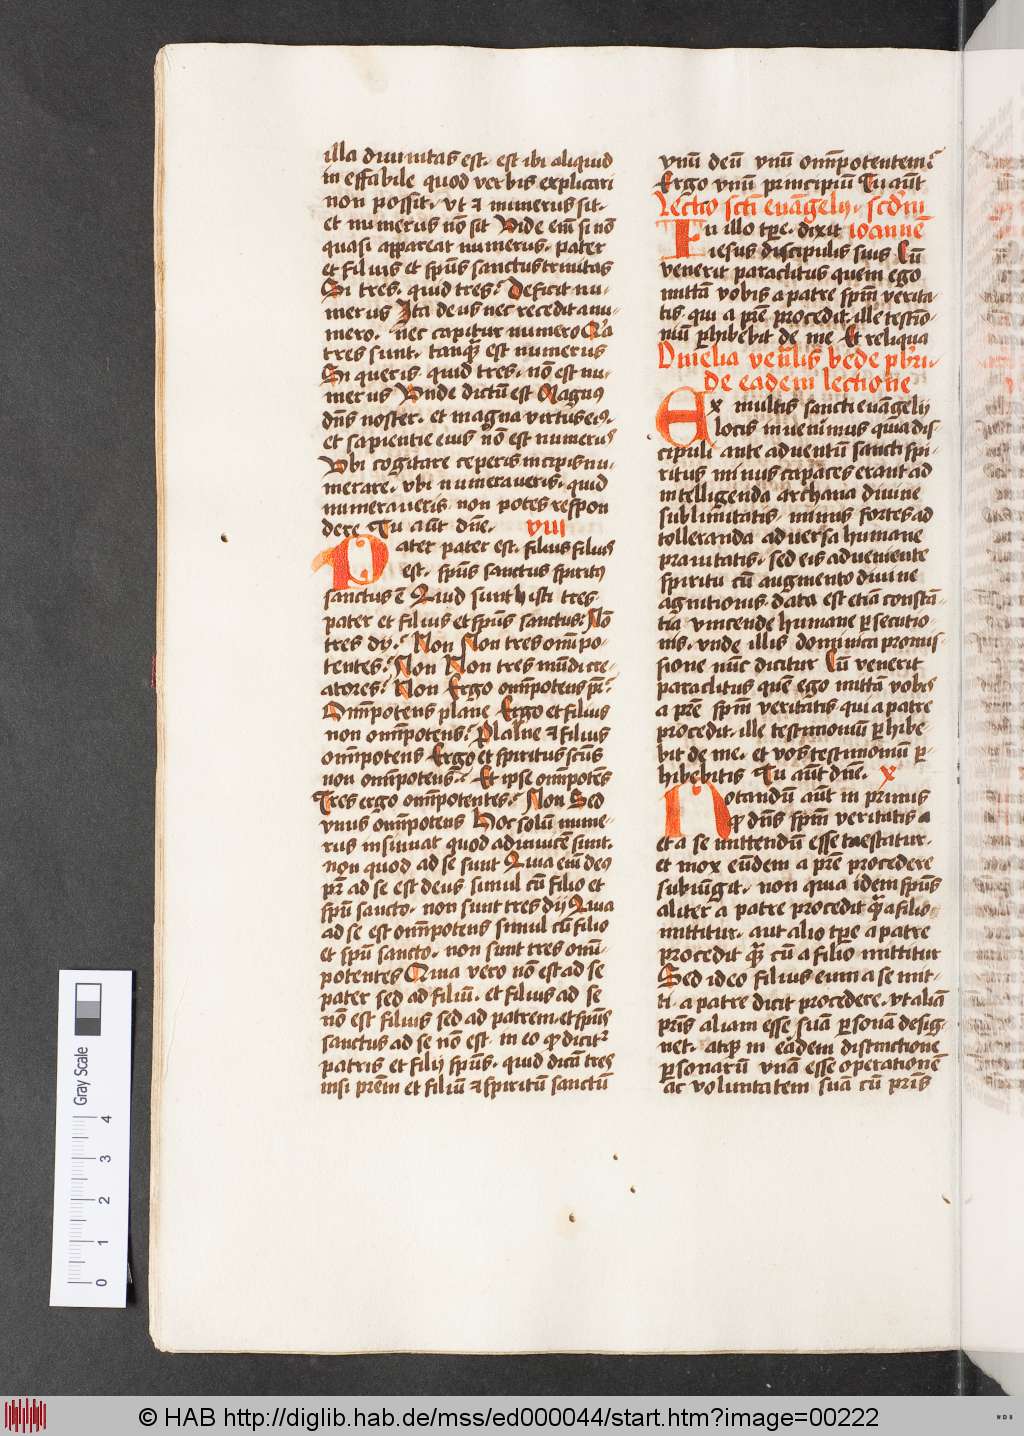 illa diuinitas est. est ibi aliquid
in effabile quod verbis explicari
non possit. vt et numerus sit.
et numerus nō sit Vide em̄ si nō
quasi appareat numerus. pater
et filius et sp̄us sanctus trinitas
Si tres. quid tres? Deficit nu-
merus Ita deus nec recedit a nu-
mero. nec capitur numero Q'a
tres sunt. tanq̄ est numerus
Si queris quid tres. nō est nu-
merus Vnde dictū est Magnus
dn̄s noster. et magna virtus eius.
et sapientie eius nō est numerus
Vbi cogitare ceperis incipis nu-
merare. vbi numeraueris. quid
numeraueris non potes respon
dere Tu aūt dn̄e. viii
Pater pater est. filius filius
est. sp̄us sanctus spiritus
sanctus ē Quid sunt hi isti tres
pater et filius et sp̄us sanctus? Nō
tres dij? Non Non tres om̄ipo-
tentes? Non Non tres mūdi cre-
atores? Non Ergo om̄ipotens pr̄?
Om̄ipotens plane Ergo et filius
non om̄ipotens? Plane et filius
om̄ipotens Ergo et spiritus sc̄us
non om̄ipotens? Et ipse om̄ipotēs
Tres ergo om̄ipotentes? Non Sed
vnus om̄ipotens Hoc solū nume-
rus insinuat quod adinuicē sunt.
non quod ad se sunt Quia em̄ deus
pr̄ ad se est deus simul cū filio et
sp̄u sancto. non sunt tres dij Quia
ad se est om̄ipotens simul cū filio
et sp̄u sancto. non sunt tres om̄i-
potentes Quia vero nō est ad se
pater sed ad filiū. et filius ad se
nō est filius sed ad patrem. et sp̄us
sanctus ad se nō est. in eo q̄ dicitr
patris et filij sp̄us. quid dicā tres
nisi pr̄em et filiū et spiritū sanctū
vnū deū vnū om̄ipotentem?
Ergo vnū principiū Tu aūt
Lectio sc̄ti euāgelij. scd'm
In illo tp̄e. dixit ioannē
iesus discipulis suis Cū
venerit paraclitus quem ego
mittā vobis a patre sp̄m verita-
tis. qui a pr̄e procedit. ille testīo-
niū phibebit de me Et reliqua
Omelia ven̄lis bede pb'ri.
de eadem lectione
Ex multis sancti euāgelij
locis inuenimus quia dis-
cipuli ante aduentū sancti spi-
ritus minus capaces erant ad
intelligenda archana diuine
sublimitatis. minus fortes ad
tolleranda aduersa humane
prauitatis. sed eis adueniente
spiritu cū augmento diuine
agnitionis. data est etiā constā-
tia vincende humane psecutio-
nis. vnde illis dominica promis-
sione nūc dicitur Cū venerit
paraclitus quē ego mittā vobis
a pr̄e sp̄m veritatis qui a patre
procedit. ille testimoniū phibe-
bit de me. et vos testimoniū p-
hibebitis Tu aūt dn̄e. x
Notandū aūt in primis
q̄ dn̄s sp̄m veritatis a
et a se mittendū esse taestatur.
et mox eūdem a pr̄e procedere
subiūgit. non quia idem sp̄us
aliter a patre procedit q̄ a filio
mittitur. aut alio tp̄e a patre
procedit q̄ cū a filio mittitur
Sed ideo filius eum a se mit-
ti. a patre dicit procedere. vt aliā
pr̄is aliam esse suā psonā desig-
net. atq̄ in eādem distinctione
psonarū vnā esse operationē
ac voluntatem suā cū pr̄is
Gray Scale
4
3
2
1
0
© HAB http://diglib.hab.de/mss/ed000044/start.htm?image=00222